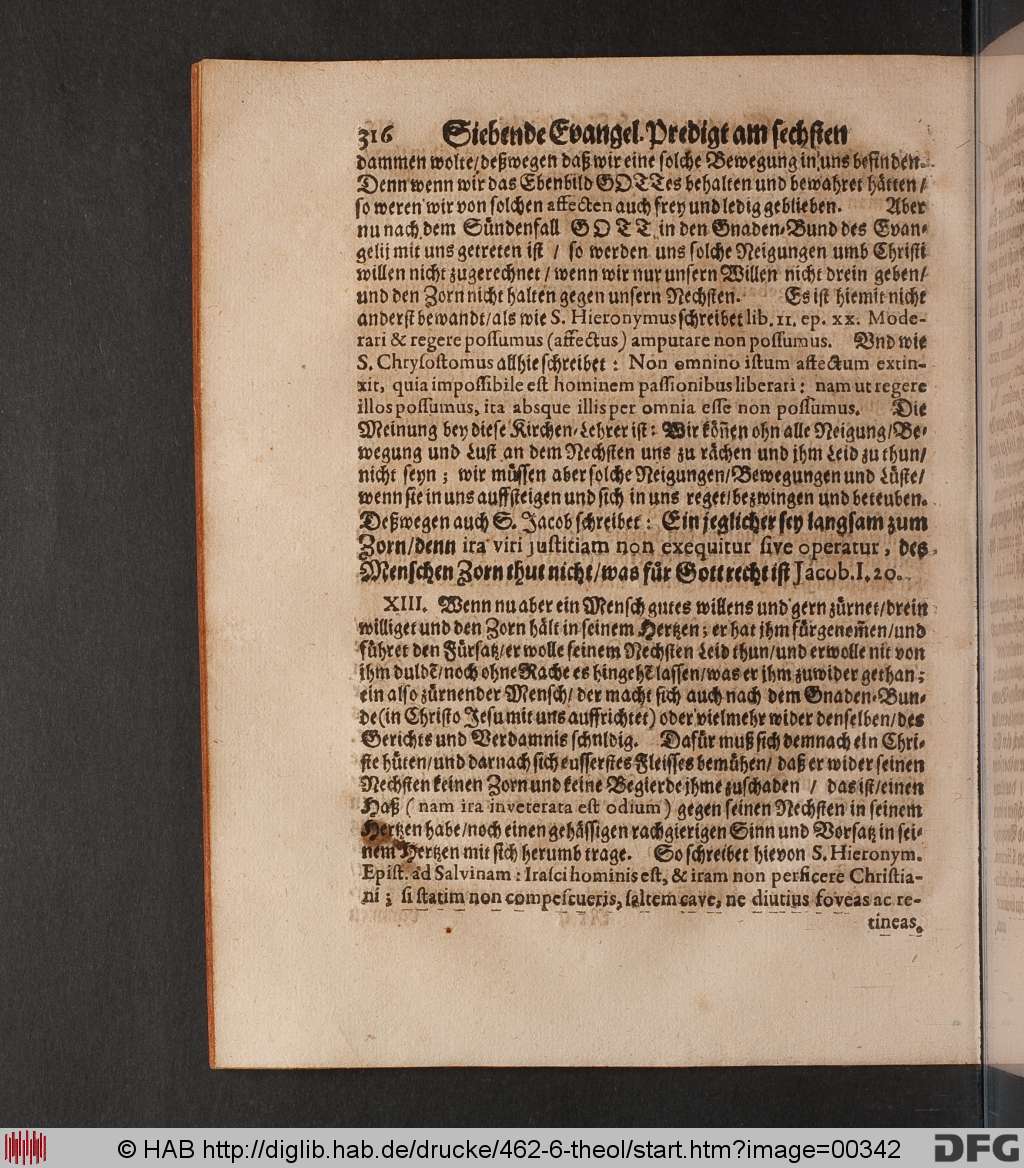 316 Siebende Evangel. Predigt am sechsten
dammen wolte/deßwegen daß wir eine solche Bewegung in uns befinden.
Denn wenn wir das Ebenbild GOTTes behalten und bewahret hätten/
so weren wir von solchen affecten auch frey und ledig geblieben. Aber
nu nach dem Sündenfall GOTT in den Gnaden-Bund des Evan-
gelij mit uns getreten ist / so werden uns solche Neigungen umb Christi
willen nicht zugerechnet / wenn wir nur unsern Willen nicht drein geben/
und den Zorn nicht halten gegen unsern Nechsten. Es ist hiemit nicht
anderst bewandt/als wie S. Hieronymus schreibet lib. 11. ep. xx. Mode-
rari & regere possumus (affectus) amputare non possumus. Vnd wie
S. Chrysostomus allhie schreibet : Non omnino istum affectum extin-
xit, quia impossibile est hominem passionibus liberari : nam ut regere
illos possumus, ita absque illis per omnia esse non possumus. Die
Meinung bey diese Kirchen-Lehrer ist : Wir köñen ohn alle Neigung/Be-
wegung und Lust an dem Nechsten uns zu rächen und jhm Leid zu thun/
nicht seyn ; wir müssen aber solche Neigungen/Bewegungen und Lüste/
wenn sie in uns auffsteigen und sich in uns reget/bezwingen und beteuben.
Deßwegen auch S. Jacob schreibet : Ein jeglicher sey langsam zum
Zorn/denn ira viri justitiam non exequitur sive operatur, des
Menschen Zorn thut nicht/was für Gott recht ist Jacob. I. 20.
XIII. Wenn nu aber ein Mensch gutes willens und gern zürnet/drein
williget und den Zorn hält in seinem Hertzen ; er hat jhm fürgenom̃en/und
führet den Fürsatz/er wolle seinem Nechsten Leid thun/und er wolle nit von
jhm duldẽ/noch ohne Rache es hingehẽ lassen/was er jhm zuwider gethan ;
ein also zürnender Mensch/ der macht sich auch nach dem Gnaden-Bun-
de (in Christo Jesu mit uns auffrichtet) oder vielmehr wider denselben/des
Gerichts und Verdamnis schuldig. Dafür muß sich demnach ein Chri-
ste hüten/und darnach sich eusserstes Fleisses bemühen/ daß er wider seinen
Nechsten keinen Zorn und keine Begierde jhme zuschaden / das ist/einen
Haß ( nam ira inveterata est odium ) gegen seinen Nechsten in seinem
Hertzen habe/noch einen gehässigen rachgierigen Sinn und Vorsatz in sei-
nem Hertzen mit sich herumb trage. So schreibet hievon S. Hieronym.
Epist. ad Salvinam : Irasci hominis est, & iram non perficere Christia-
ni ; si statim non compescueris, saltem cave, ne diutius foveas ac re-
tineas.
© HAB http://diglib.hab.de/drucke/462-6-theol/start.htm?image=00342
DFG